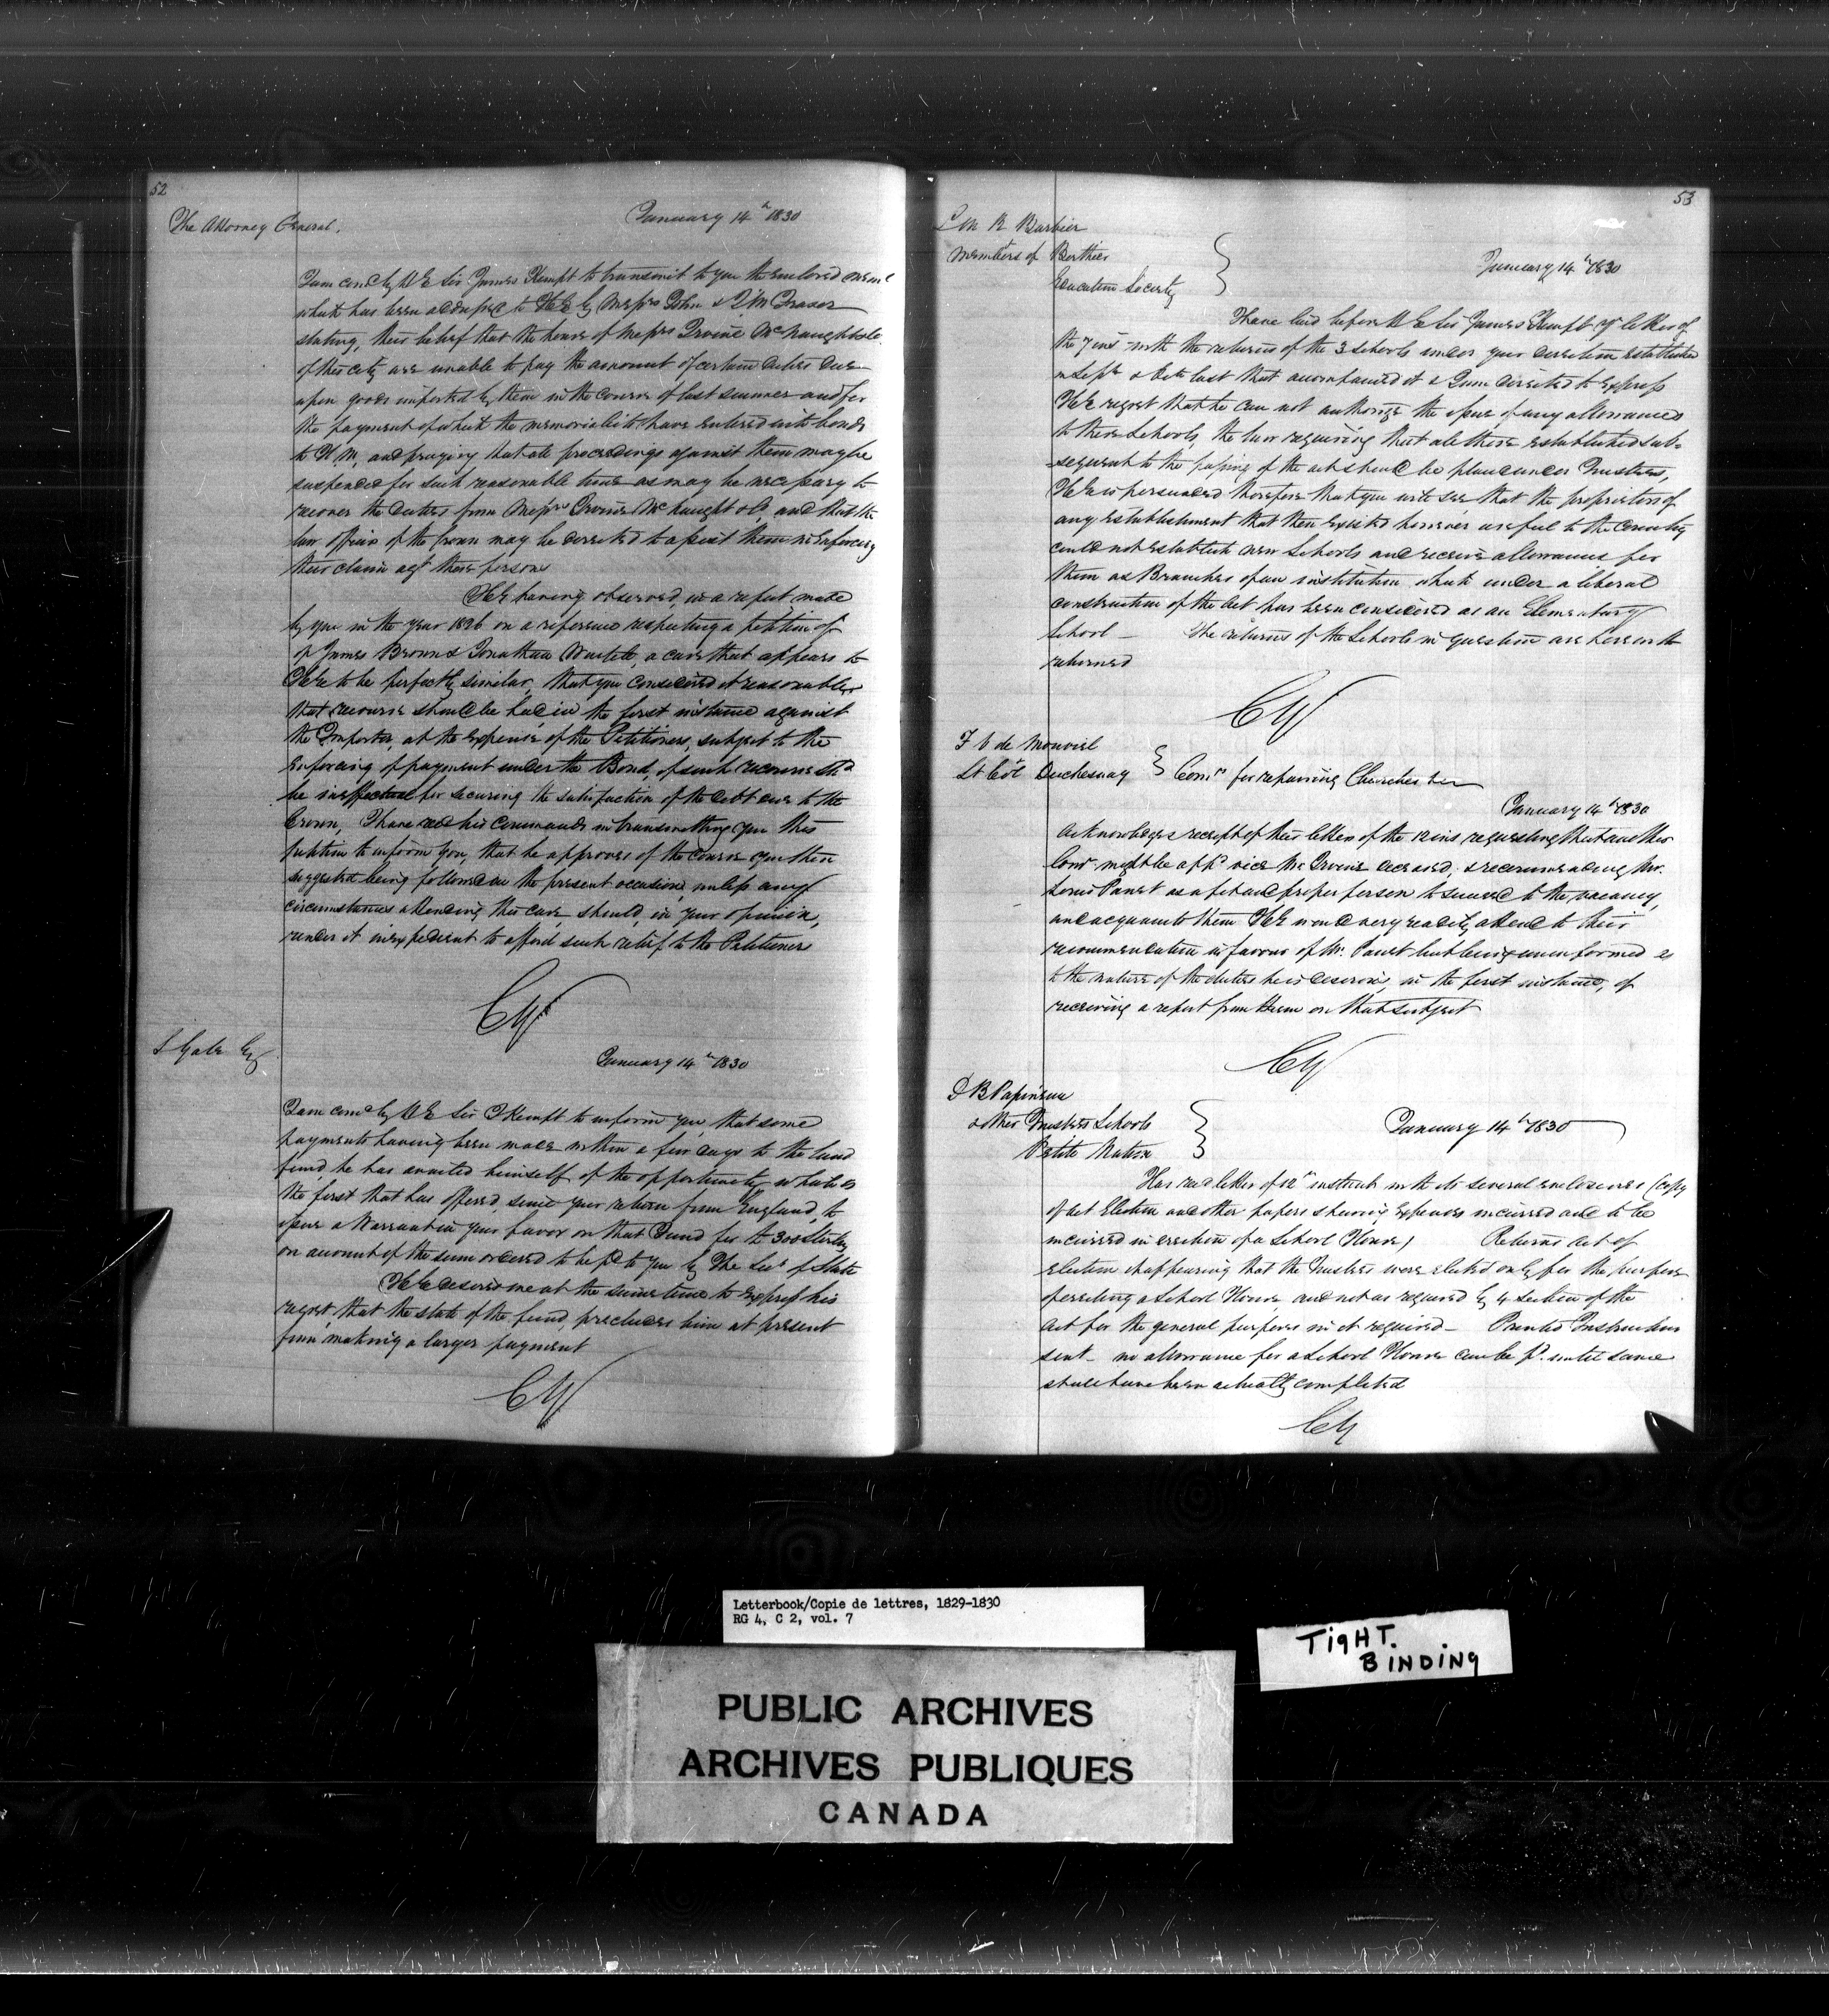 52
The Attorney General.
January 14th 1830
I am comd by H E Sir James Kempt to transmit to you the enclosed meml
which has been addressed to H E by Messrs John & Fraser
stating, their belief that the house of Messrs Irvine McNaught & Co
of this city are unable to pay the amount of certain duties due
upon goods imported by them in the course of last summer and for
the payment of which the memorialists have entered into bonds
to H. M, and praying that all proceedings against them may be
suspended for such reasonable time as may be necessary to
recover the duties from Messrs Irvine McNaught & Co and that the
law officers of the Crown may be directed to assist them in enforcing
their claim agt these persons
H E having observed, in a report made
by you in the year 1826 on a reference respecting a petition of
James Brown & Jonathan Wurtele, a case that appears to
H E to be perfectly similar, that you considered it reasonable
that recourse should be had in the first instance against
the Importer, at the expense of the Petitioners, subject to the
enforcing of payment under the Bond, if such recourse shd
be ineffectual for securing the satisfaction of the debt due to the
Crown, I have recd his commands in transmitting you this
petition to inform you, that he approves of the course you then
suggested being followed on the present occasion, unless any
circumstances attending this case, should, in your opinion,
render it inexpedient to afford such relief to the Petitioners
CY
S Gale Esq
January 14th 1830
I am comd by H E Sir J Kempt to inform you, that some
payments having been made within a few days to the land
fund, he has availed himself of the opportunity which is
the first that has offered, since your return from England, to
issue a Warrant in your favor on that Fund for the 300 Sterling
on account of the sum ordered to be pd to you by The Secy of State
H E desires me at the same time to express his
regret, that the state of the fund, precludes him at present
from making a larger payment
CY
53
L M R Barbier
Members of Berthier
Education Society
January 14th 1830
I have laid before H E Sir James Kempt yr letter of
the 7 ins with the returns of the 3 schools under your direction established
in Sept & Octr last that accompanied it & I am directed to express
H E regret that he can not authorize the issue of any allowances
to these Schools, the law requiring that all those established sub-
-sequent to the passing of the act should be placed under Trustees,
H E is persuaded therefore that you will see, that the proprietors of
any establishment that then existed however useful to the Country
could not establish new Schools and receive allowances for
them as Branches of an institution which under a liberal
construction of the Act has been considered as an Elementary
School — The returns of the Schools in question are herewith
returned
CY
F V de Monviel
Lt Col Duchesnay } Comrs for repairing Churches &c
January 14th 1830
Acknowledges receipt of their letter of the 12 ins requesting that another
Comr might be appd vice Mr Irvine deceased, & recommending Mr.
Louis Panet as a fit and proper person to succeed to the vacancy,
and acquaints them H E would very readily attend to their
recommendation in favour of Mr. Panet but being uninformed as
to the nature of the duties he is desirous, in the first instance, of
receiving a report from them on that subject
CY
D B Papineau
& other Trustees Schools
Petite Nation
January 14th 1830
Has recd letter of 12th instant with its several enclosures (copy
of act Election and other papers shewing Expenses incurred and to be
incurred in erection of a School House) Returns act of
Election it appearing that the Trustees were elected only for the purpose
of erecting a School House and not as required by 4 Section of the
Act for the general purposes in it required — Printed Instructions
sent — no allowance for a School House can be pd. until same
shall have been actually completed
CY
Letterbook/Copie de lettres, 1829-1830
RG 4, C 2, vol. 7
TIGHT.
BINDING
PUBLIC ARCHIVES
ARCHIVES PUBLIQUES
CANADA